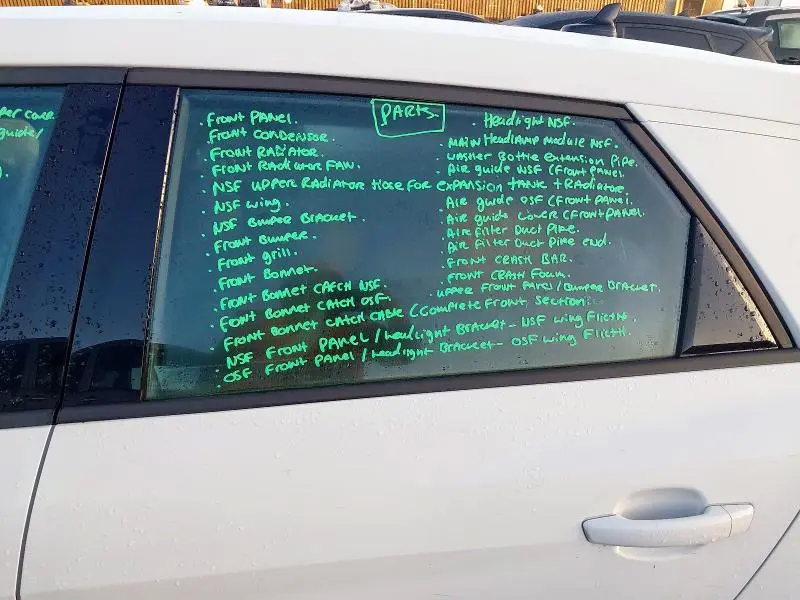 per cover
guide/
PARTS.
. Front PANEL.
Front CONDENSOR.
. Front RADiATOR.
Front RADiator FAN.
. NSF UPPER RADiator Hose For Expansion tank + RADiator.
. NSF wing.
. NSF Bumper Bracket.
. Front Bumper.
. Front grill.
. Front Bonnet.
. Front Bonnet CATCH NSF.
. Font Bonnet CATCH OSF.
Front Bonnet CATCH CABLE (Complete Front Section).
. NSF Front PANEL / Headlight Bracket - NSF wing Flicth.
. OSF Front PANEL / Headlight Bracket - OSF wing Flicth.
. Headlight NSF.
. MAIN HeadlAMP module NSF.
. washer Bottle extension Pipe.
. Air guide NSF (Front PANEL).
. Air guide OSF (Front PANEL).
. Air guide Lower (Front PANEL).
. Air Filter Duct Pipe.
. Air Filter Duct Pipe end.
. Front CRASH BAR.
. Front CRASH Foam.
. upper Front PANEL / Bumper Bracket.